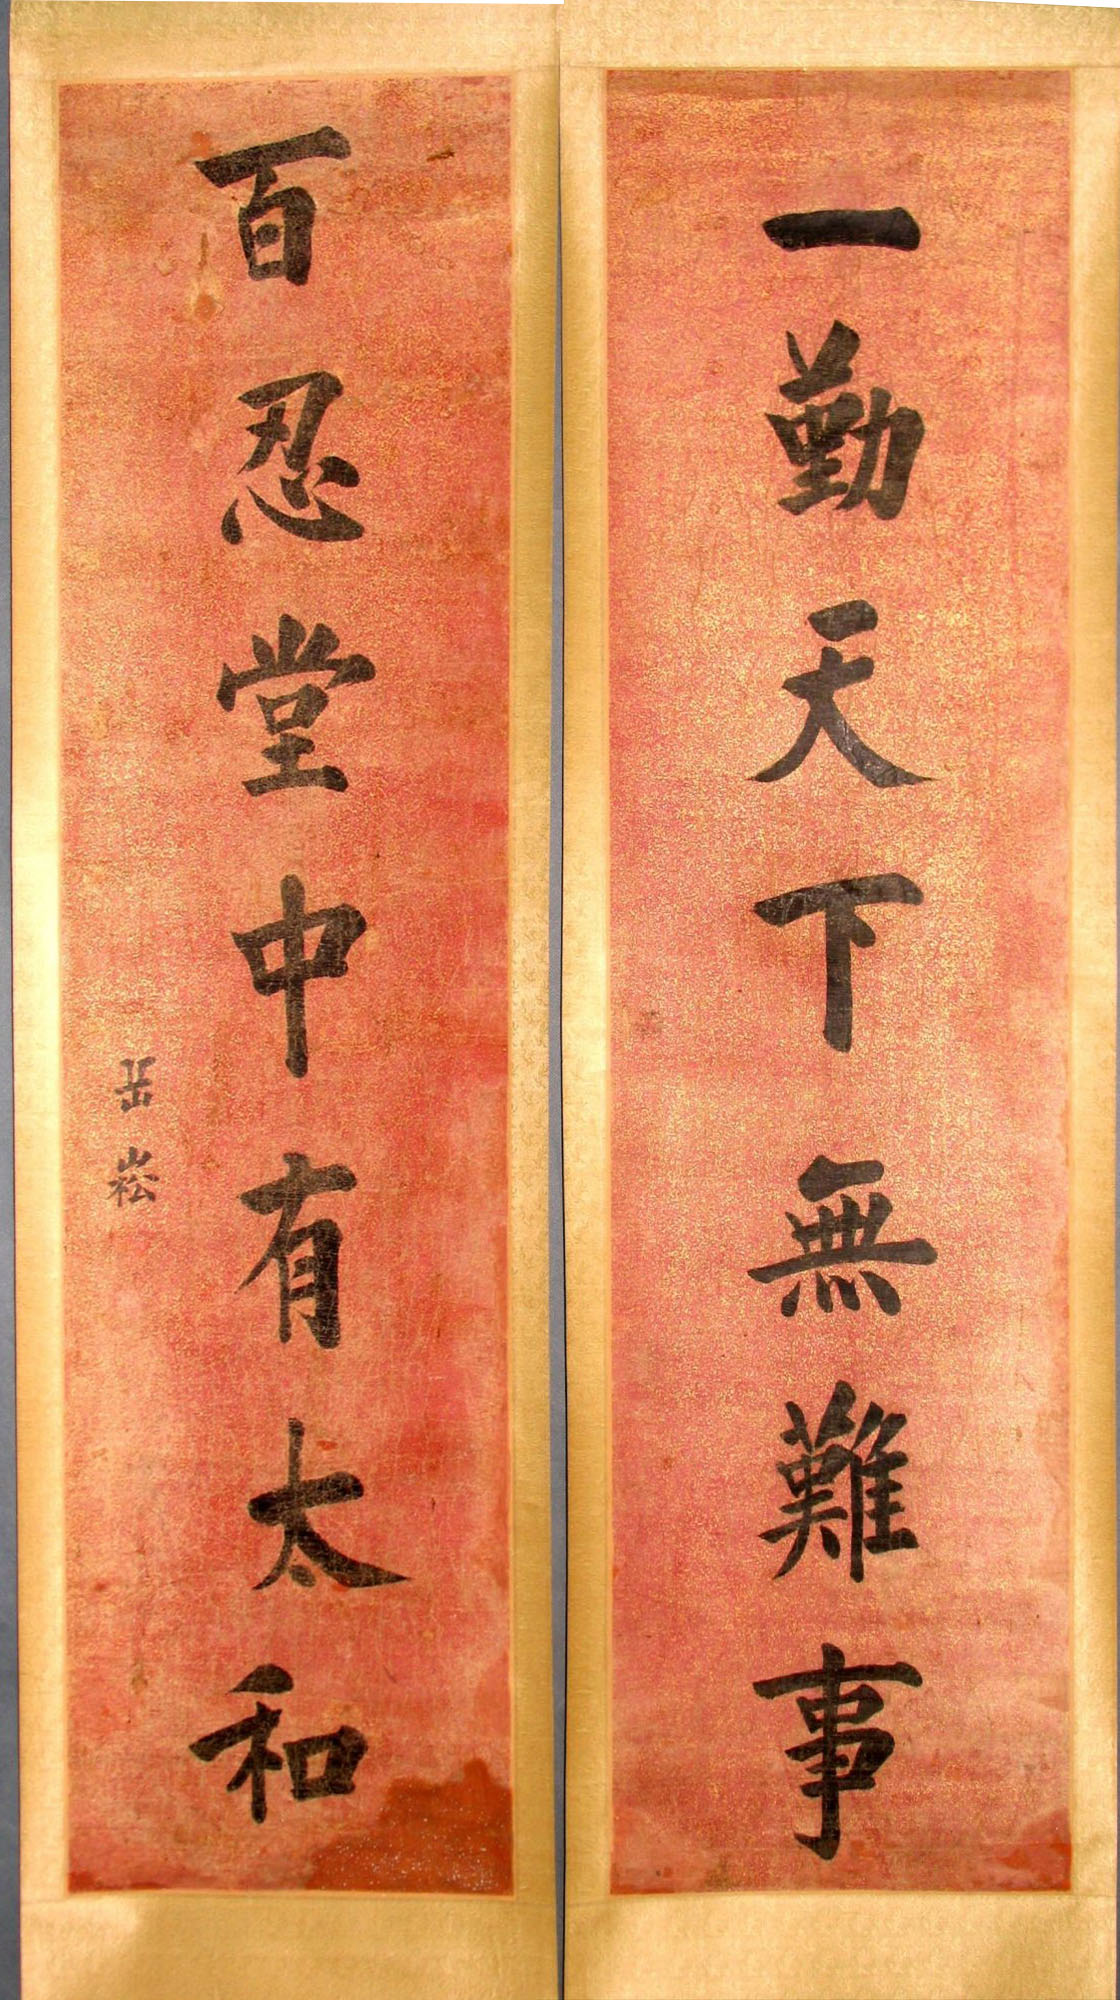 一勤天下無難事
百忍堂中有太和
岳崧